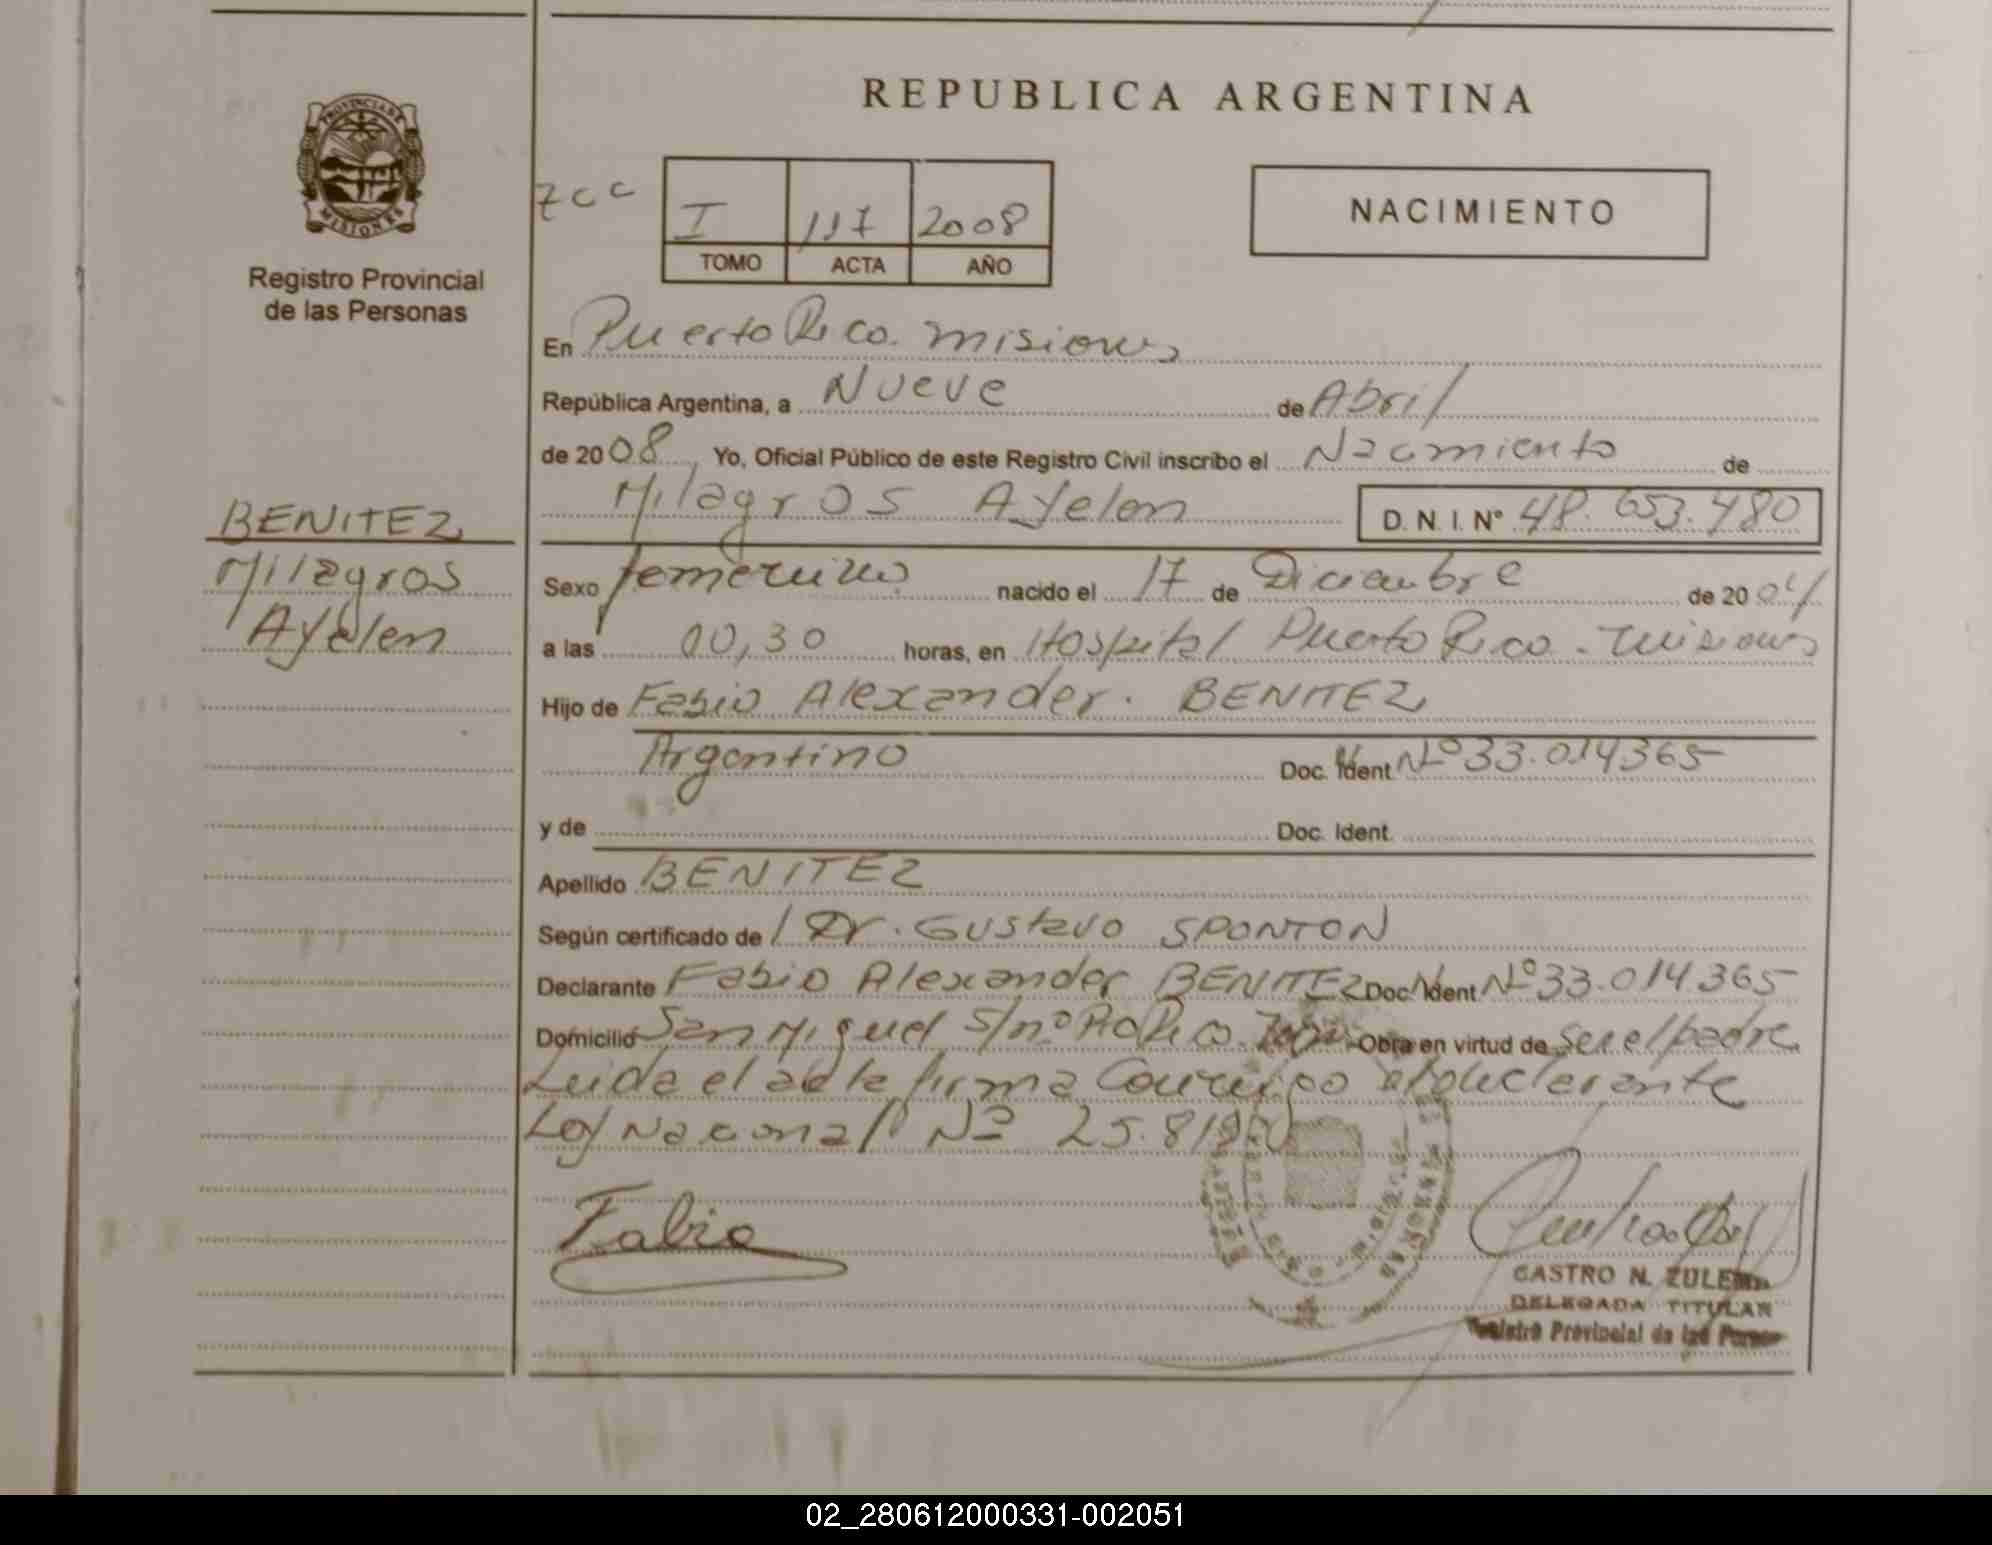 REPUBLICA ARGENTINA
PROVINCIA DE
MISIONES
Registro Provincial
de las Personas
I 117 2008
TOMO ACTA AÑO
NACIMIENTO
En Puerto Rico. Misiones
República Argentina, a Nueve de Abril
de 2008, Yo, Oficial Público de este Registro Civil inscribo el Nacimiento de
Milagros Ayelen D. N. I. Nº 48.653.480
BENITEZ
Milagros
Ayelen
Sexo femenino nacido el 17 de Diciembre de 2004
a las 10,30 horas, en Hospital Puerto Rico - Misiones
Hijo de Fabio Alexander. BENITEZ
Argentino Doc. Ident. Nº 33.014365
y de Doc. Ident.
Apellido BENITEZ
Según certificado de Dr. Gustavo SPONTON
Declarante Fabio Alexander BENITEZ Doc. Ident Nº 33.014.365
Domicilio San Miguel S/nº Pto Rico Obra en virtud de ser el padre
Leida el acta firma Conmigo el declarante
Ley Nacional Nº
Fabio
CASTRO N. ZULEMA
DELEGADA TITULAR
Registro Provincial de las Personas
02_280612000331-002051